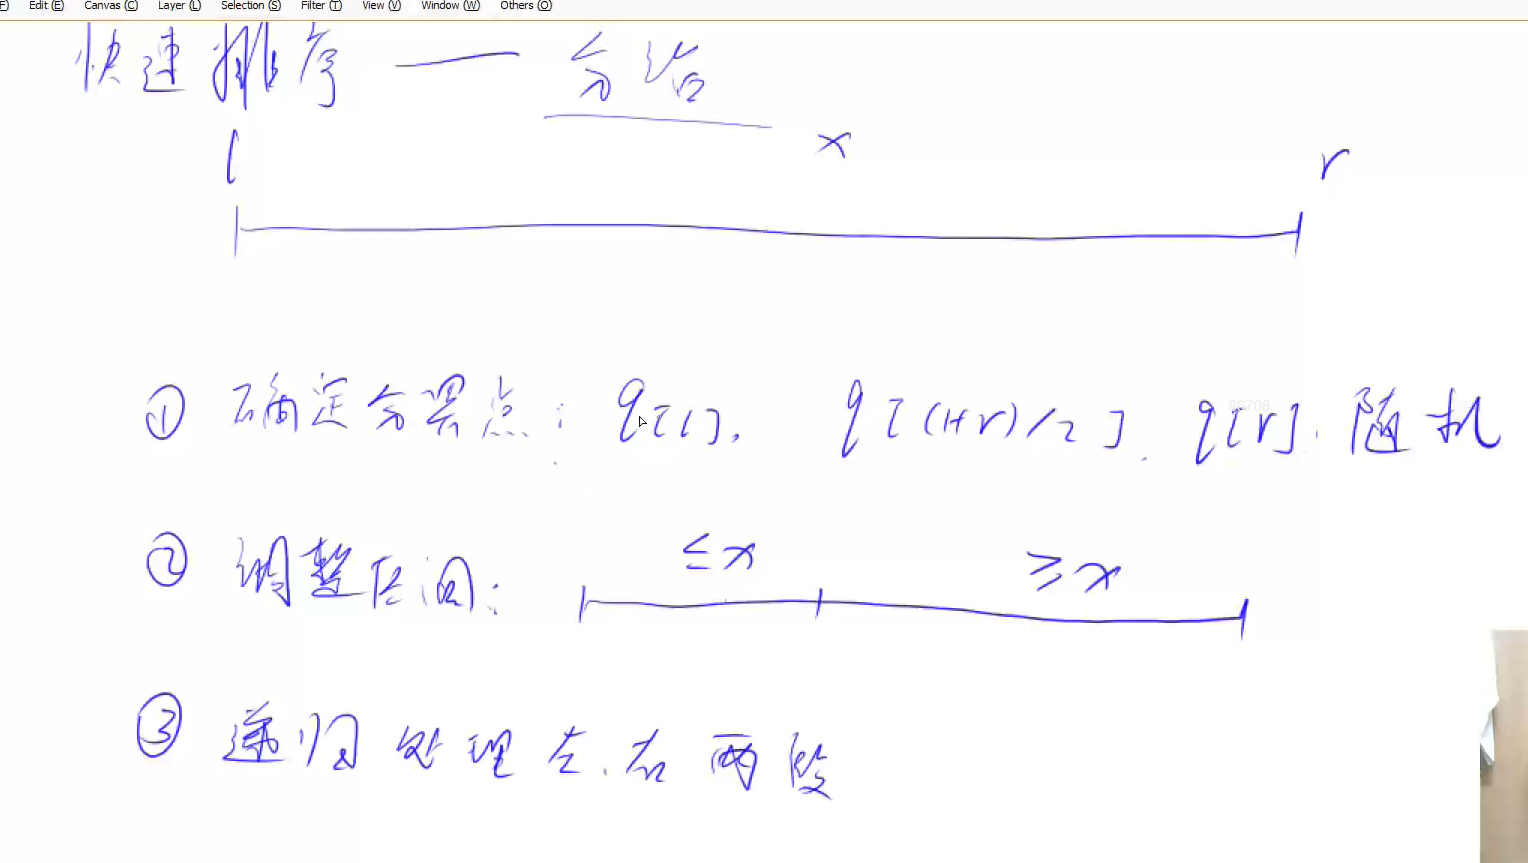 Edit (E) Canvas (C) Layer (L) Selection (S) Filter (T) View (V) Window (W) Others (O)
快速排序 — 分治
l x r
① 确定分界点: q[l], q[(l+r)/2], q[r], 随机
86708
② 调整区间: ≤x ≥x
③ 递归处理左、右两段